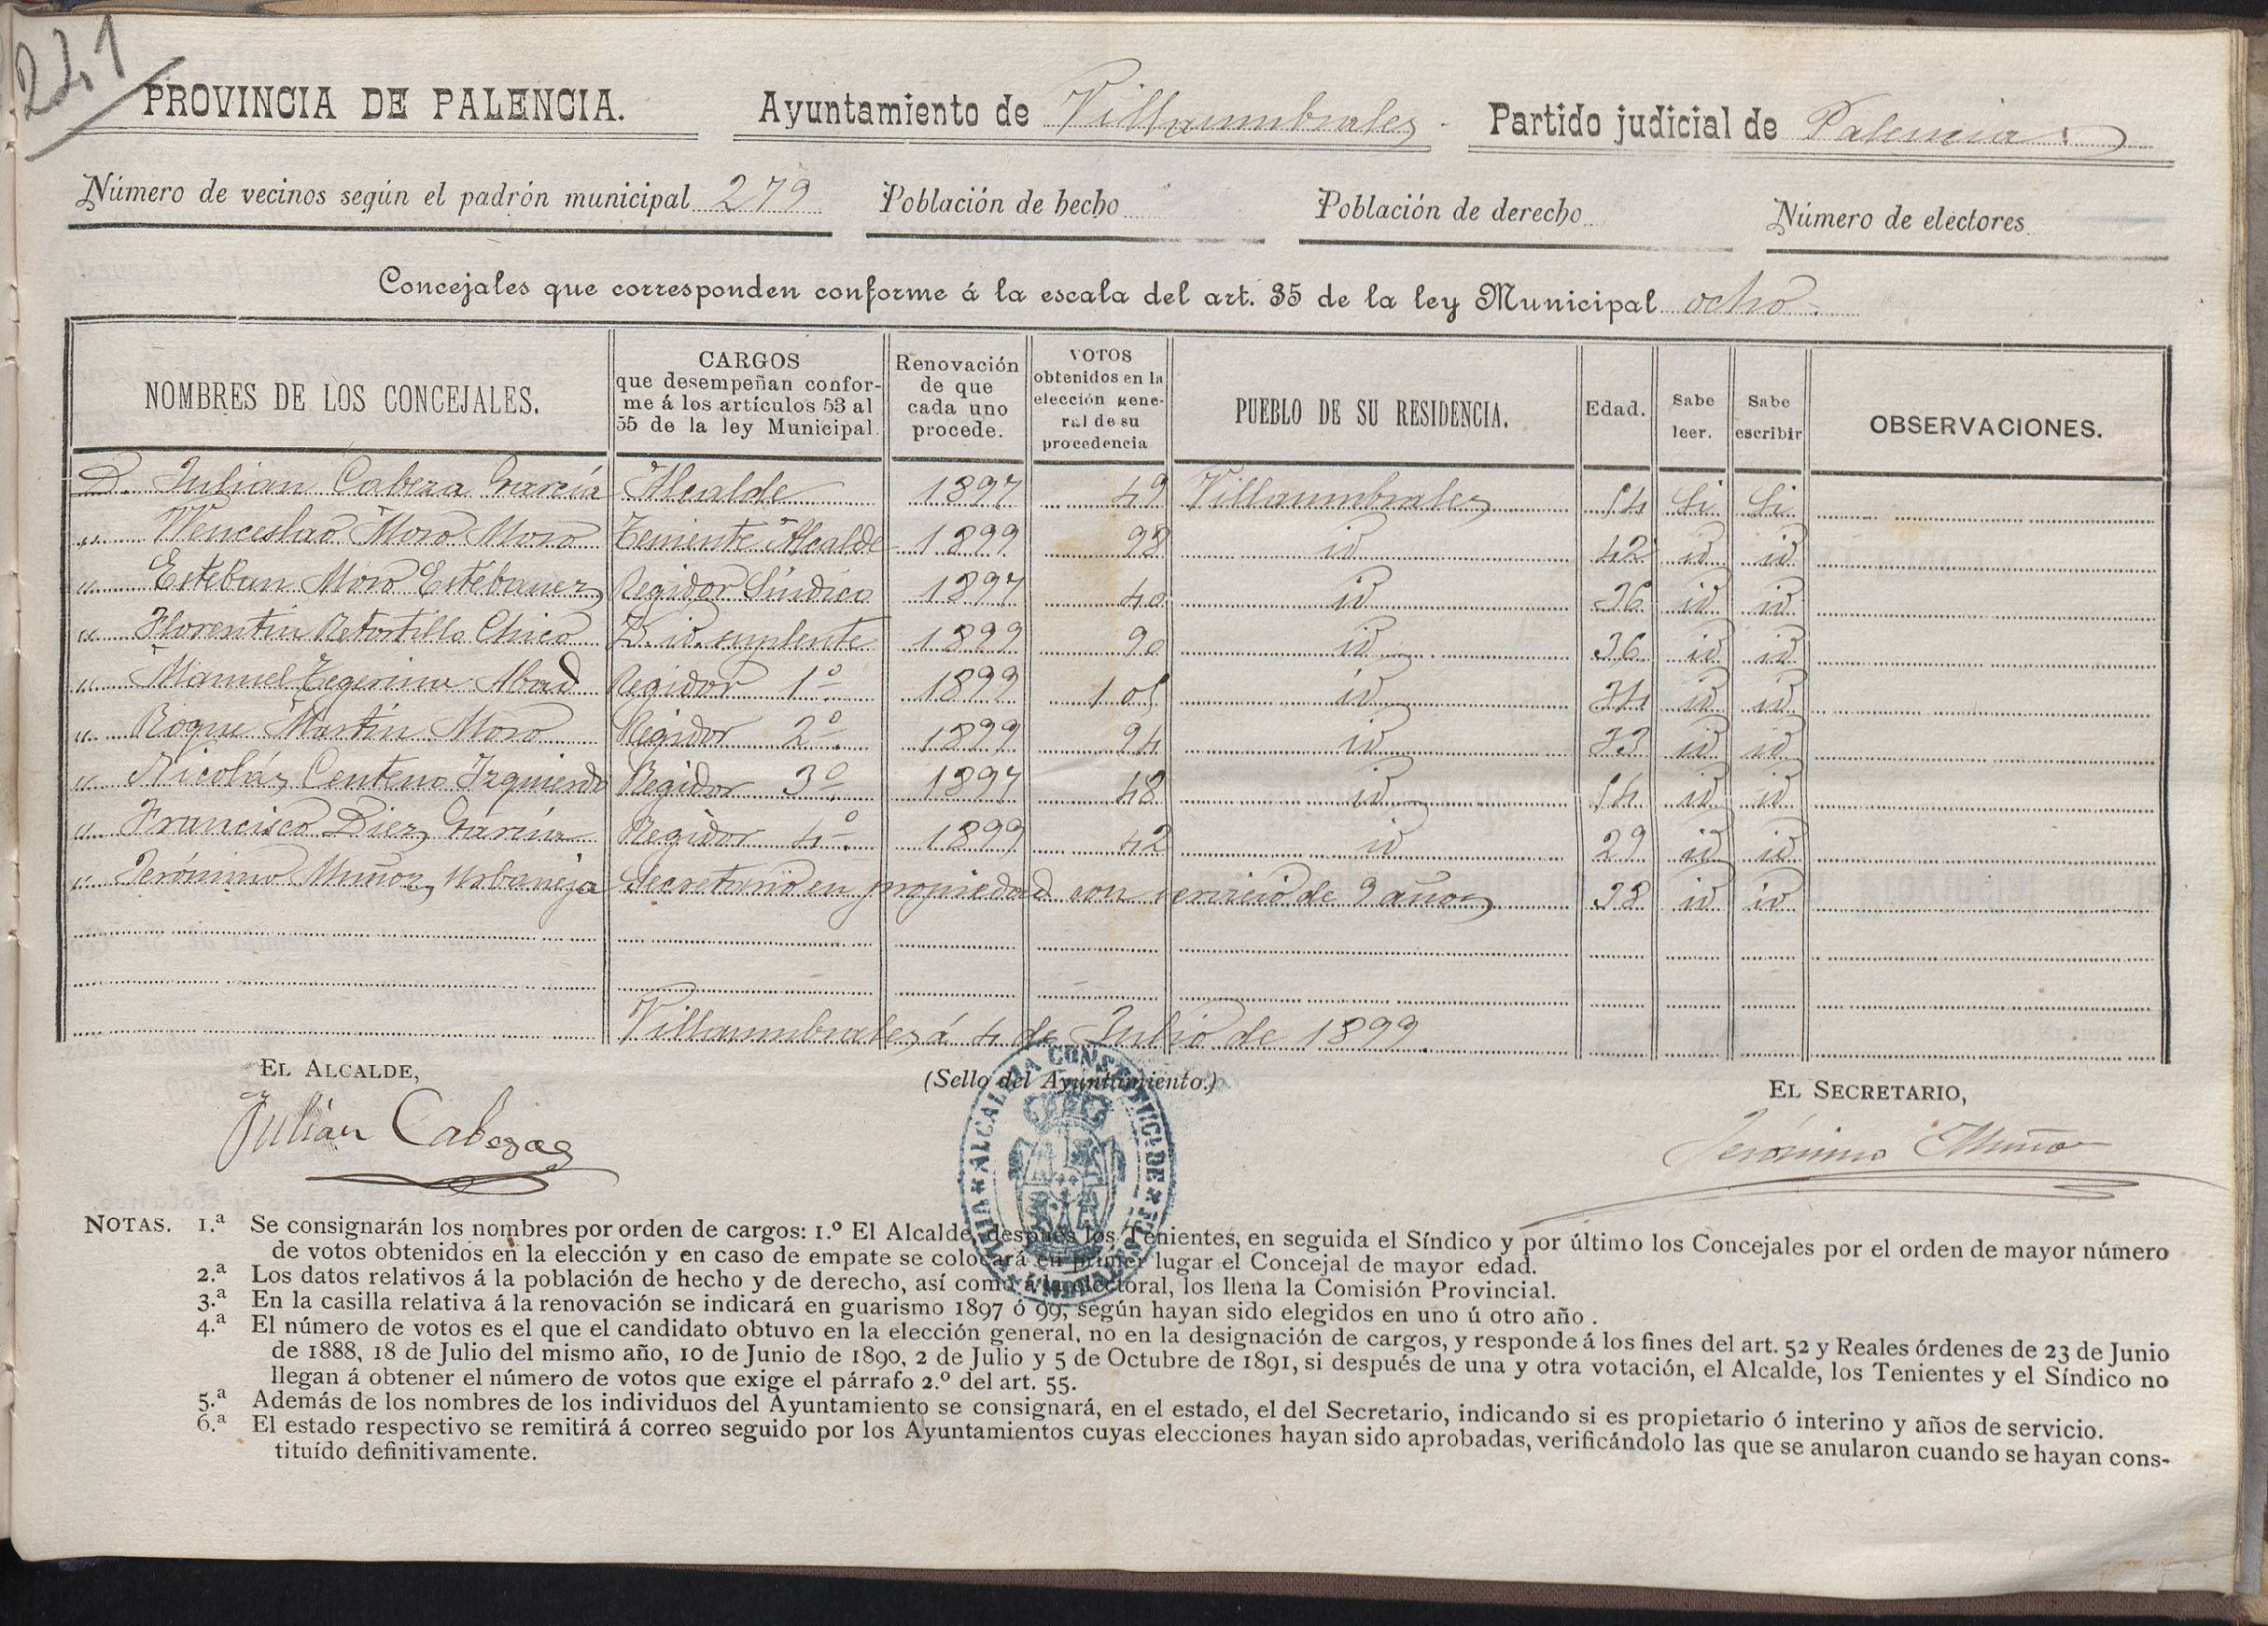 221
PROVINCIA DE PALENCIA. Ayuntamiento de Villaumbrales. Partido judicial de Palencia
Número de vecinos según el padrón municipal 279 Población de hecho Población de derecho Número de electores
Concejales que corresponden conforme á la escala del art. 35 de la ley Municipal ocho.
NOMBRES DE LOS CONCEJALES. CARGOS que desempeñan conforme á los artículos 53 al 55 de la ley Municipal. Renovación de que cada uno procede. VOTOS obtenidos en la elección general de su procedencia PUEBLO DE SU RESIDENCIA. Edad. Sabe leer. Sabe escribir OBSERVACIONES.
D. Julian Cabeza García Alcalde 1897 49 Villaumbrales 54 Si Si
" Wenceslao Moro Moro Teniente Alcalde 1899 98 id 42 id id
" Esteban Moro Estébanez Regidor Síndico 1897 40 id 36 id id
" Florentin Retortillo Chico R. id. suplente 1899 90 id 36 id id
" Manuel Tegerina Abad Regidor 1º 1899 105 id 34 id id
" Roque Martín Moro Regidor 2º 1899 94 id 33 id id
" Nicolás Centeno Izquierdo Regidor 3º 1897 48 id 54 id id
" Francisco Diez García Regidor 4º 1899 42 id 29 id id
" Jerónimo Muñoz Urbaneja Secretario en propiedad con servicio de 9 años 38 id id
Villaumbrales á 4 de Julio de 1899.
EL ALCALDE, (Sello del Ayuntamiento.) EL SECRETARIO,
Julián Cabezas Jerónimo Muñoz
ALCALDIA CONSTITUCL. DE
NOTAS. 1.ª Se consignarán los nombres por orden de cargos: 1.º El Alcalde, después los Tenientes, en seguida el Síndico y por último los Concejales por el orden de mayor número
de votos obtenidos en la elección y en caso de empate se colocará en primer lugar el Concejal de mayor edad.
2.ª Los datos relativos á la población de hecho y de derecho, así como á la electoral, los llena la Comisión Provincial.
3.ª En la casilla relativa á la renovación se indicará en guarismo 1897 ó 99, según hayan sido elegidos en uno ú otro año .
4.ª El número de votos es el que el candidato obtuvo en la elección general, no en la designación de cargos, y responde á los fines del art. 52 y Reales órdenes de 23 de Junio
de 1888, 18 de Julio del mismo año, 10 de Junio de 1890, 2 de Julio y 5 de Octubre de 1891, si después de una y otra votación, el Alcalde, los Tenientes y el Síndico no
llegan á obtener el número de votos que exige el párrafo 2.º del art. 55.
5.ª Además de los nombres de los individuos del Ayuntamiento se consignará, en el estado, el del Secretario, indicando si es propietario ó interino y años de servicio.
6.ª El estado respectivo se remitirá á correo seguido por los Ayuntamientos cuyas elecciones hayan sido aprobadas, verificándolo las que se anularon cuando se hayan cons-
tituído definitivamente.